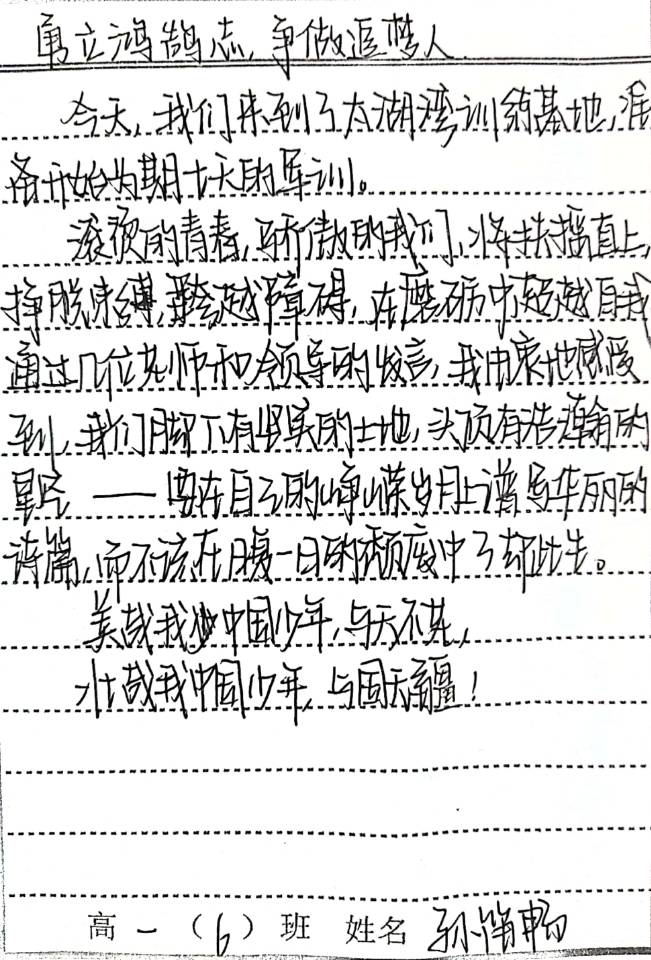 勇立鸿鹄志,争做追梦人.
今天,我们来到了太湖湾训练基地,准
备开始为期七天的军训。
滚烫的青春,骄傲的我们,将扶摇直上,
挣脱束缚,跨越障碍,在磨砺中超越自我
通过几位老师和领导的发言,我由衷地感受
到,我们脚下有坚实的土地,头顶有浩瀚的
星空——要在自己的峥嵘岁月上谱写华丽的
诗篇,而不该在日复一日的颓废中了却此生。
美哉我少中国少年,与天不老,
壮哉我中国少年,与国无疆!
高一(6)班 姓名 孙 畅